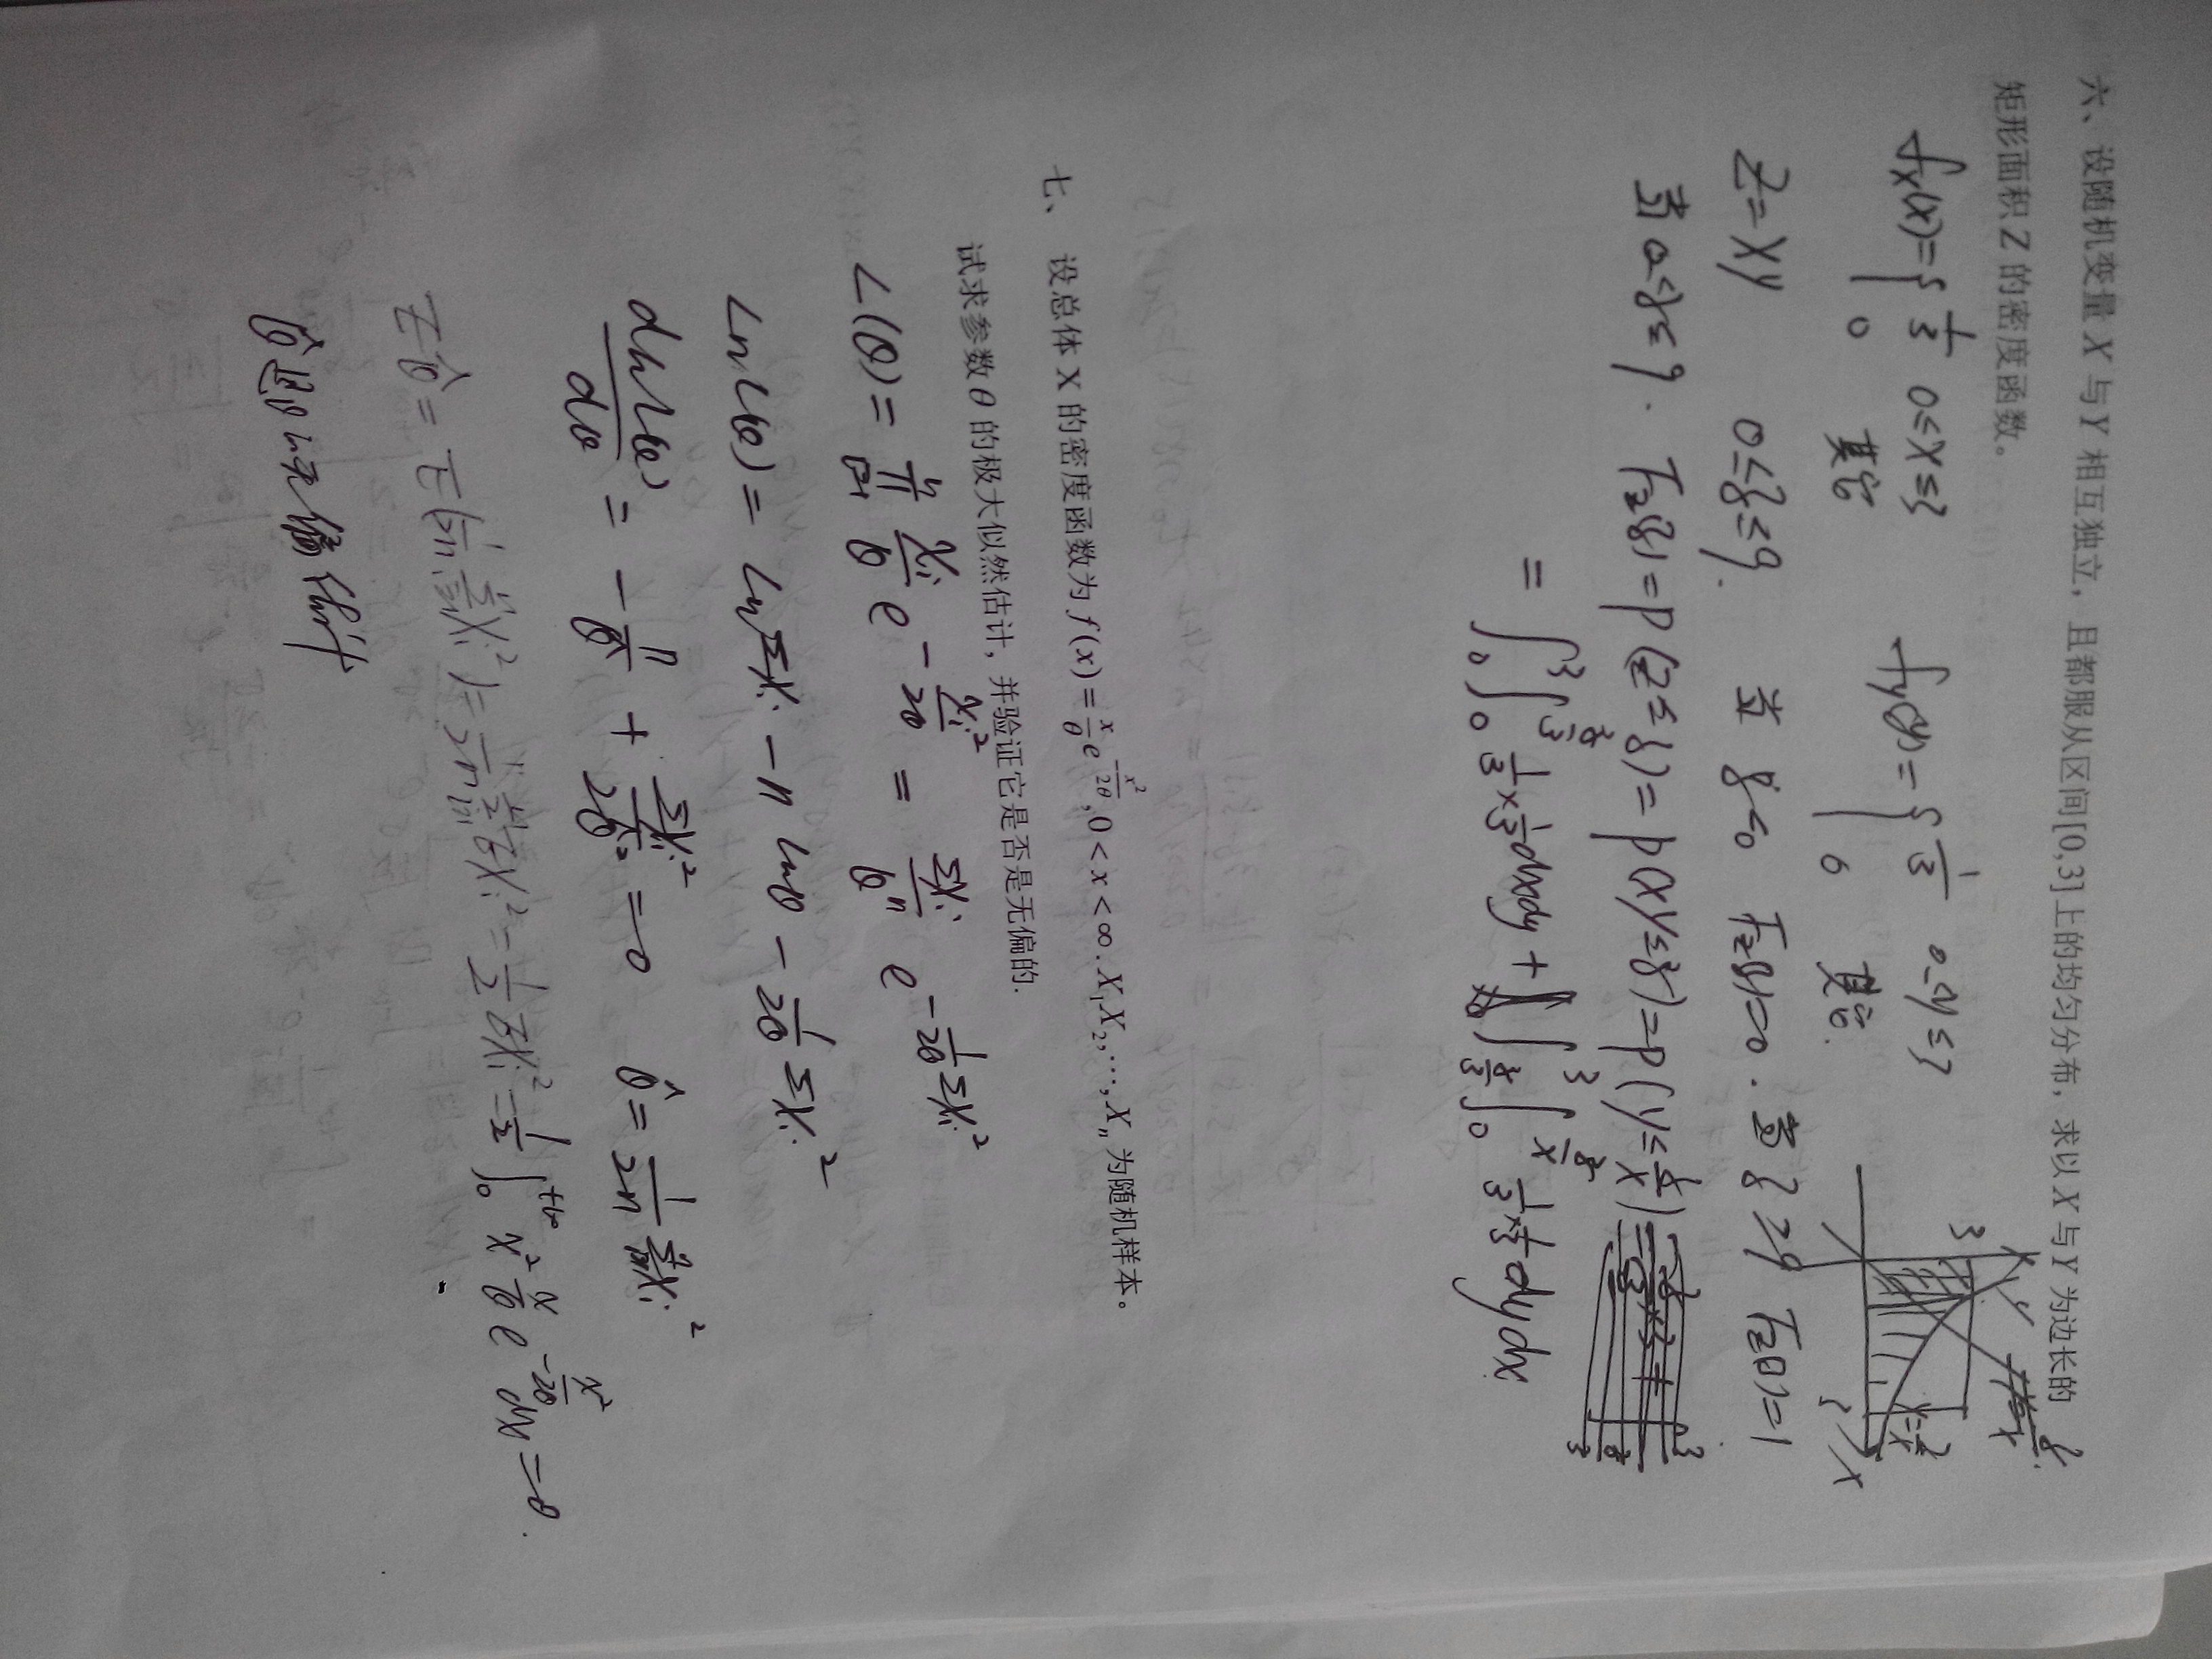 六、设随机变量 X 与 Y 相互独立，且都服从区间[0,3]上的均匀分布，求以 X 与 Y 为边长的
矩形面积 Z 的密度函数。
fx(x)={ 1/3 0≤x≤3
0 其它
fy(y)={ 1/3 0≤y≤3
0 其它.
3
y=z/x
x
Z=XY 0≤z≤9. 当 z<0 Fz(z)=0. 当 z≥9 Fz(z)=1
当 0<z≤9. Fz(z)=P(Z≤z)=P(XY≤z)=P(Y≤z/x)
= ∫₀³∫₀^{z/3} 1/3×1/3dxdy + ∫_{z/3}^3∫₀^{z/x} 1/3×1/3dydx
七、 设总体 X 的密度函数为 f(x)=x/θ e^{-x²/2θ},0<x<∞.X₁,X₂,…,Xₙ 为随机样本。
试求参数θ 的极大似然估计，并验证它是否是无偏的.
L(θ)=∏_{i=1}^n xi/θ e^{-xi²/2θ} = Σxi/θⁿ e^{-1/2θ Σxi²}
LnL(θ)= lnΣxi -n lnθ - 1/2θ Σxi²
dlnL(θ)/dθ = -n/θ + Σxi²/2θ² =0 θ̂= 1/2n Σxi²
Eθ̂=E(1/2n ΣXi²)=1/2n ΣEXi²=1/2 EXi²=1/2∫₀^{+∞} x² x/θ e^{-x²/2θ} dx=θ.
θ̂是θ的无偏估计